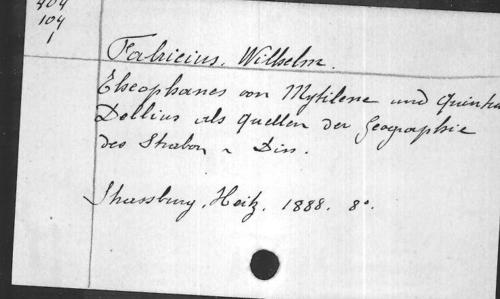 404
104
1
Fabricius, Wilhelm.
Theophanes von Mytilene und Quintus
Dellius als Quellen der Geographie
des Strabon. Diss.
Strassburg, Heitz. 1888. 8°.